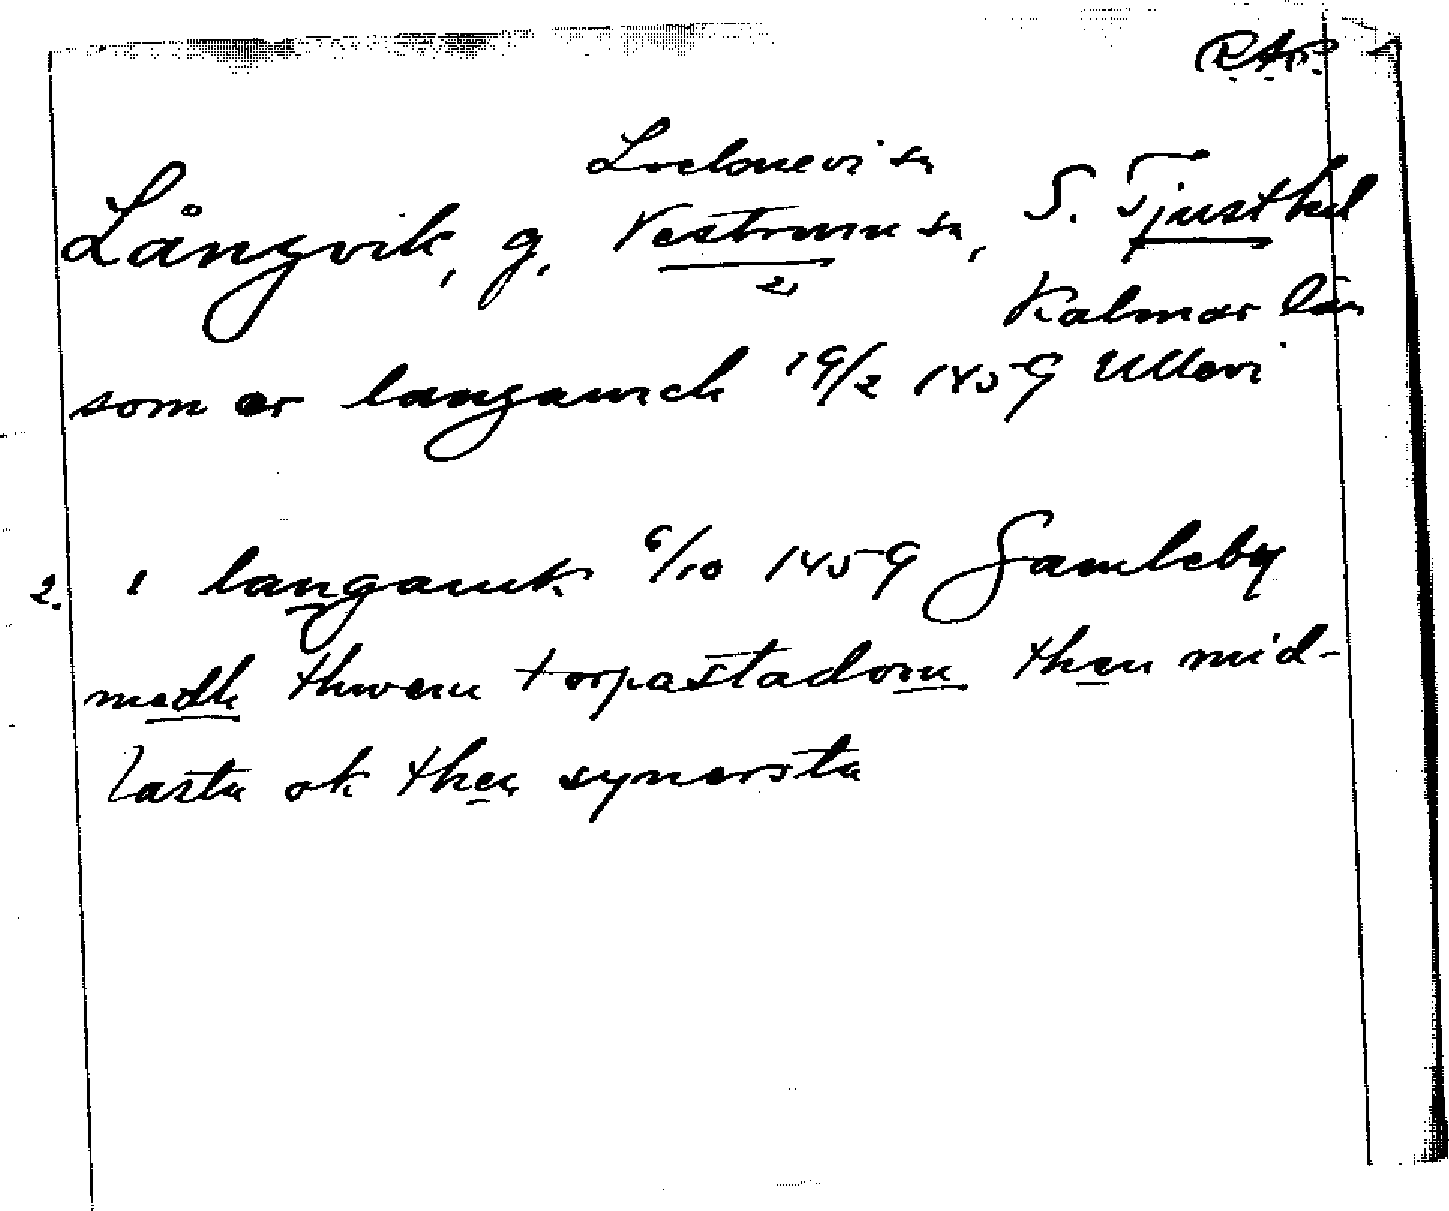 RAP
Locknevi sn
Långvik, g. Vestrum sn, S. Tjust hd
2,
Kalmar län
som er langauich 19/2 1459 Ullevi
2. i langauik 6/10 1459 Gamleby
medh thwem torpastadom then mid-
lasta ok then synersta